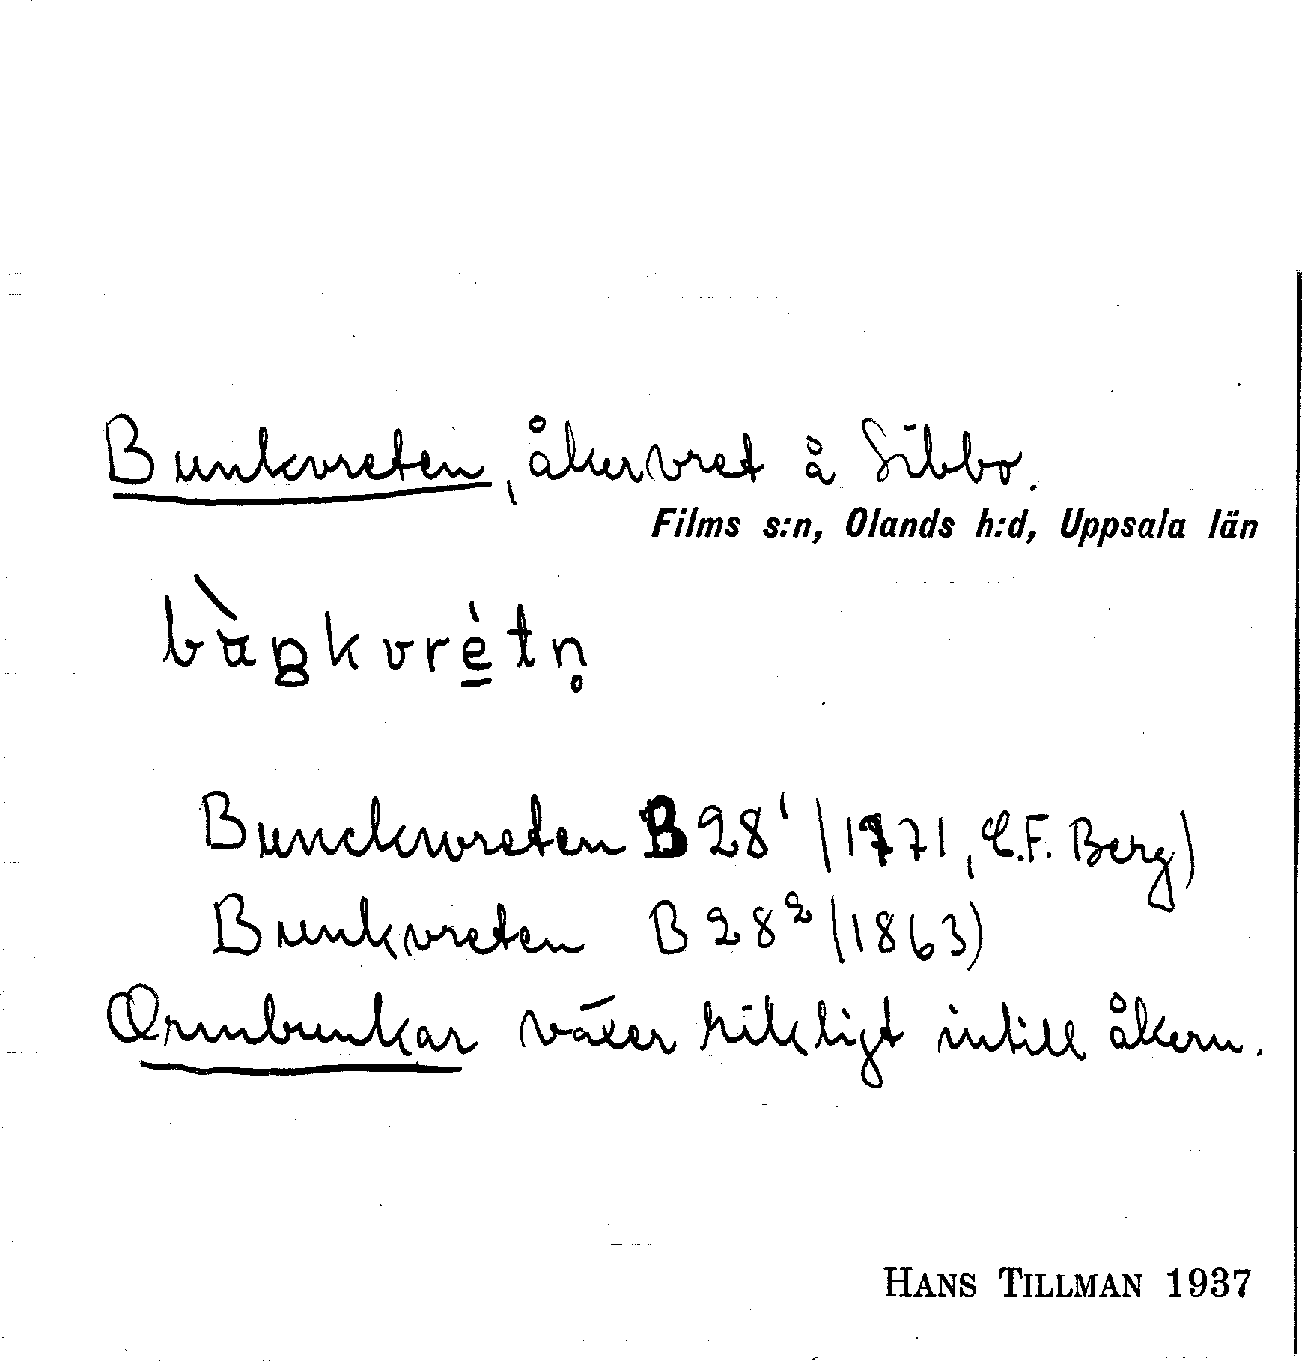 Bunkvreten, åkervret å Sibbo.
Films s:n, Olands h:d, Uppsala län
bànkvrétn̥
Bunckwreten B 28¹ (1771, E.F. Berg)
Bunkvreten B 28² (1863)
Ormbunkar växer rikligt intill åkern.
HANS TILLMAN 1937